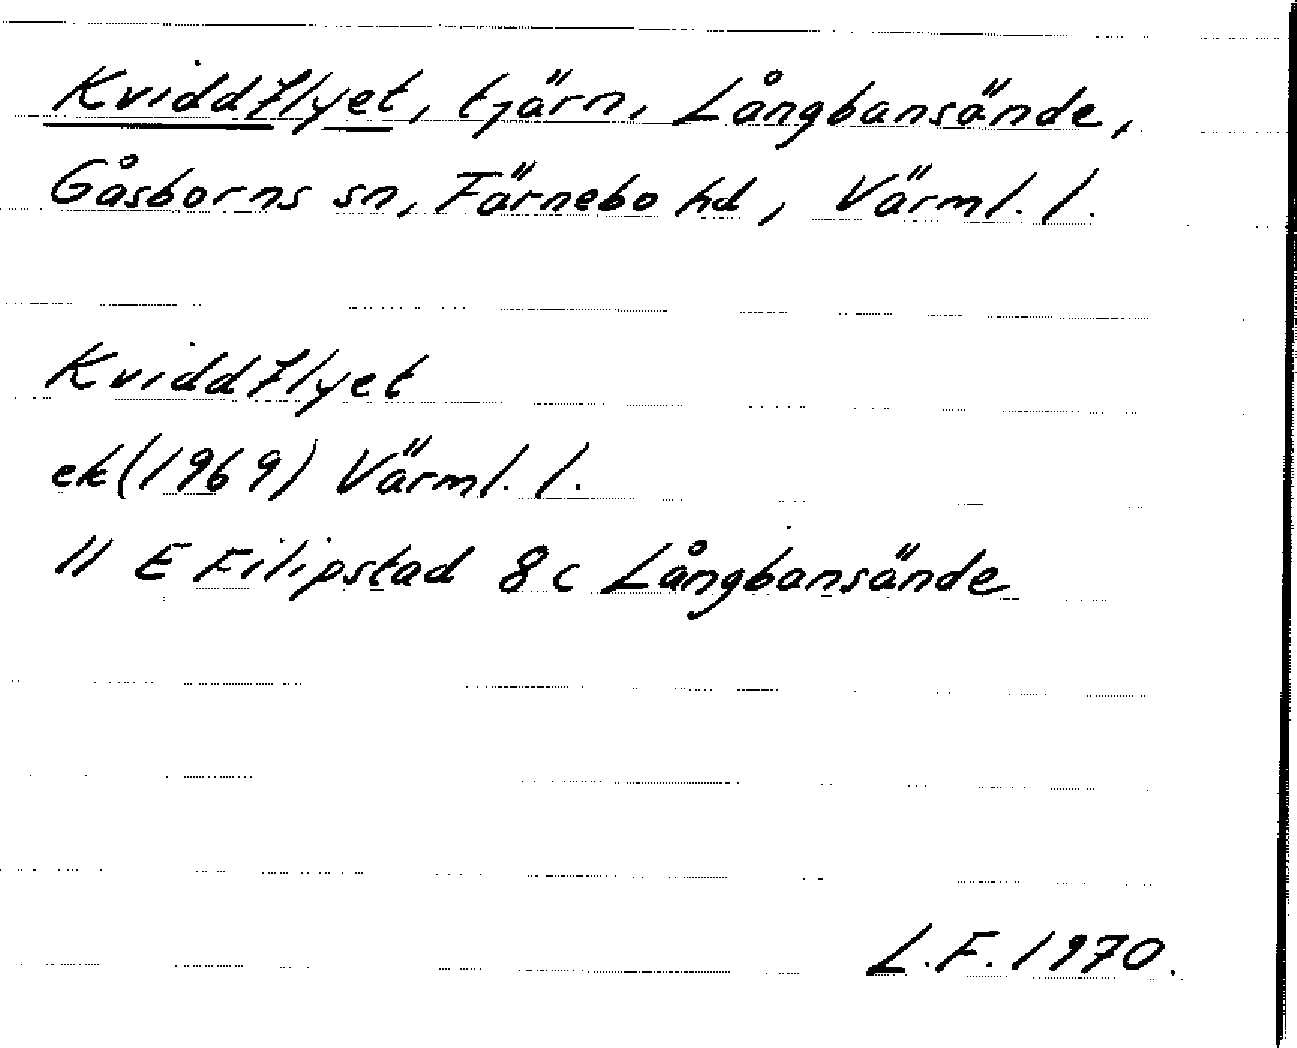 Kviddflyet, tjärn, Långbansände,
Gåsborns sn, Färnebo hd, Värml. l.
Kviddflyet
ek (1969) Värml. l.
11 E Filipstad 8c Långbansände
L.F. 1970.